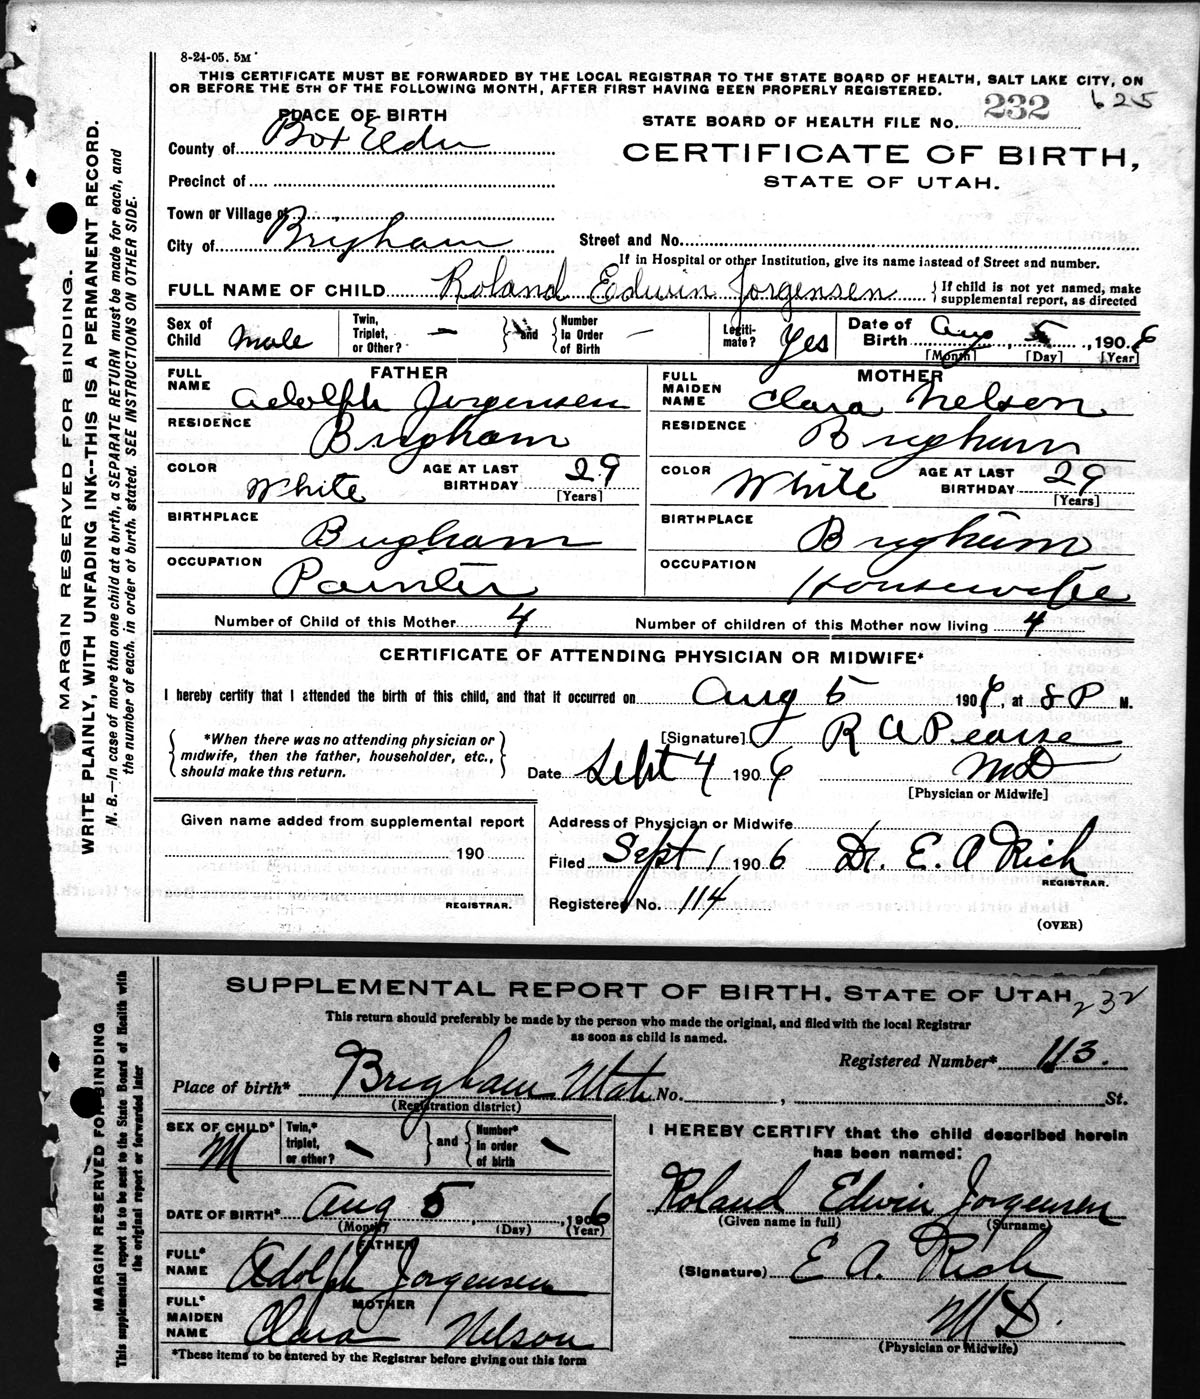 8-24-05. 5M
THIS CERTIFICATE MUST BE FORWARDED BY THE LOCAL REGISTRAR TO THE STATE BOARD OF HEALTH, SALT LAKE CITY, ON
OR BEFORE THE 5TH OF THE FOLLOWING MONTH, AFTER FIRST HAVING BEEN PROPERLY REGISTERED.
625
PLACE OF BIRTH
STATE BOARD OF HEALTH FILE No. 232
County of Box Elder
CERTIFICATE OF BIRTH,
STATE OF UTAH.
Precinct of
Town or Village of
City of Brigham
Street and No.
If in Hospital or other Institution, give its name instead of Street and number.
FULL NAME OF CHILD Roland Edwin Jorgensen
{ If child is not yet named, make
supplemental report, as directed
Sex of Child Male
Twin, Triplet, or Other? –
} and {
Number In Order of Birth –
Legiti-mate? Yes
Date of Birth Aug 5, 1906
[Month] [Day] [Year]
FATHER
FULL NAME Adolph Jorgensen
RESIDENCE Brigham
COLOR White
AGE AT LAST BIRTHDAY 29
[Years]
BIRTHPLACE Brigham
OCCUPATION Painter
MOTHER
FULL MAIDEN NAME Clara Nelson
RESIDENCE Brigham
COLOR White
AGE AT LAST BIRTHDAY 29
[Years]
BIRTHPLACE Brigham
OCCUPATION Housewife
Number of Child of this Mother 4
Number of children of this Mother now living 4
CERTIFICATE OF ATTENDING PHYSICIAN OR MIDWIFE*
I hereby certify that I attended the birth of this child, and that it occurred on Aug 5 1906, at 8 P M.
{ *When there was no attending physician or
midwife, then the father, householder, etc.,
should make this return. }
[Signature] R A Pearse
MD
Date Sept 4 1906
[Physician or Midwife]
Given name added from supplemental report
190
REGISTRAR.
Address of Physician or Midwife
Filed Sept 1 1906 Dr. E. A Rich
REGISTRAR.
Registered No. 114
(OVER)
MARGIN RESERVED FOR BINDING.
WRITE PLAINLY, WITH UNFADING INK--THIS IS A PERMANENT RECORD.
N. B.—In case of more than one child at a birth, a SEPARATE RETURN must be made for each, and
the number of each, in order of birth, stated. SEE INSTRUCTIONS ON OTHER SIDE.
SUPPLEMENTAL REPORT OF BIRTH, STATE OF UTAH
232
This return should preferably be made by the person who made the original, and filed with the local Registrar
as soon as child is named.
Registered Number* 113.
Place of birth* Brigham Utah No. , St.
(Registration district)
SEX OF CHILD* M
Twin,* triplet, or other? –
} and {
Number* in order of birth –
DATE OF BIRTH* Aug 5, 1906
(Month) (Day) (Year)
FATHER
FULL* NAME Adolph Jorgensen
MOTHER
FULL* MAIDEN NAME Clara Nelson
*These items to be entered by the Registrar before giving out this form
I HEREBY CERTIFY that the child described herein
has been named:
Roland Edwin Jorgensen
(Given name in full) (Surname)
(Signature) E A. Rich
M D.
(Physician or Midwife)
MARGIN RESERVED FOR BINDING
This supplemental report is to be sent to the State Board of Health with
the original report or forwarded later